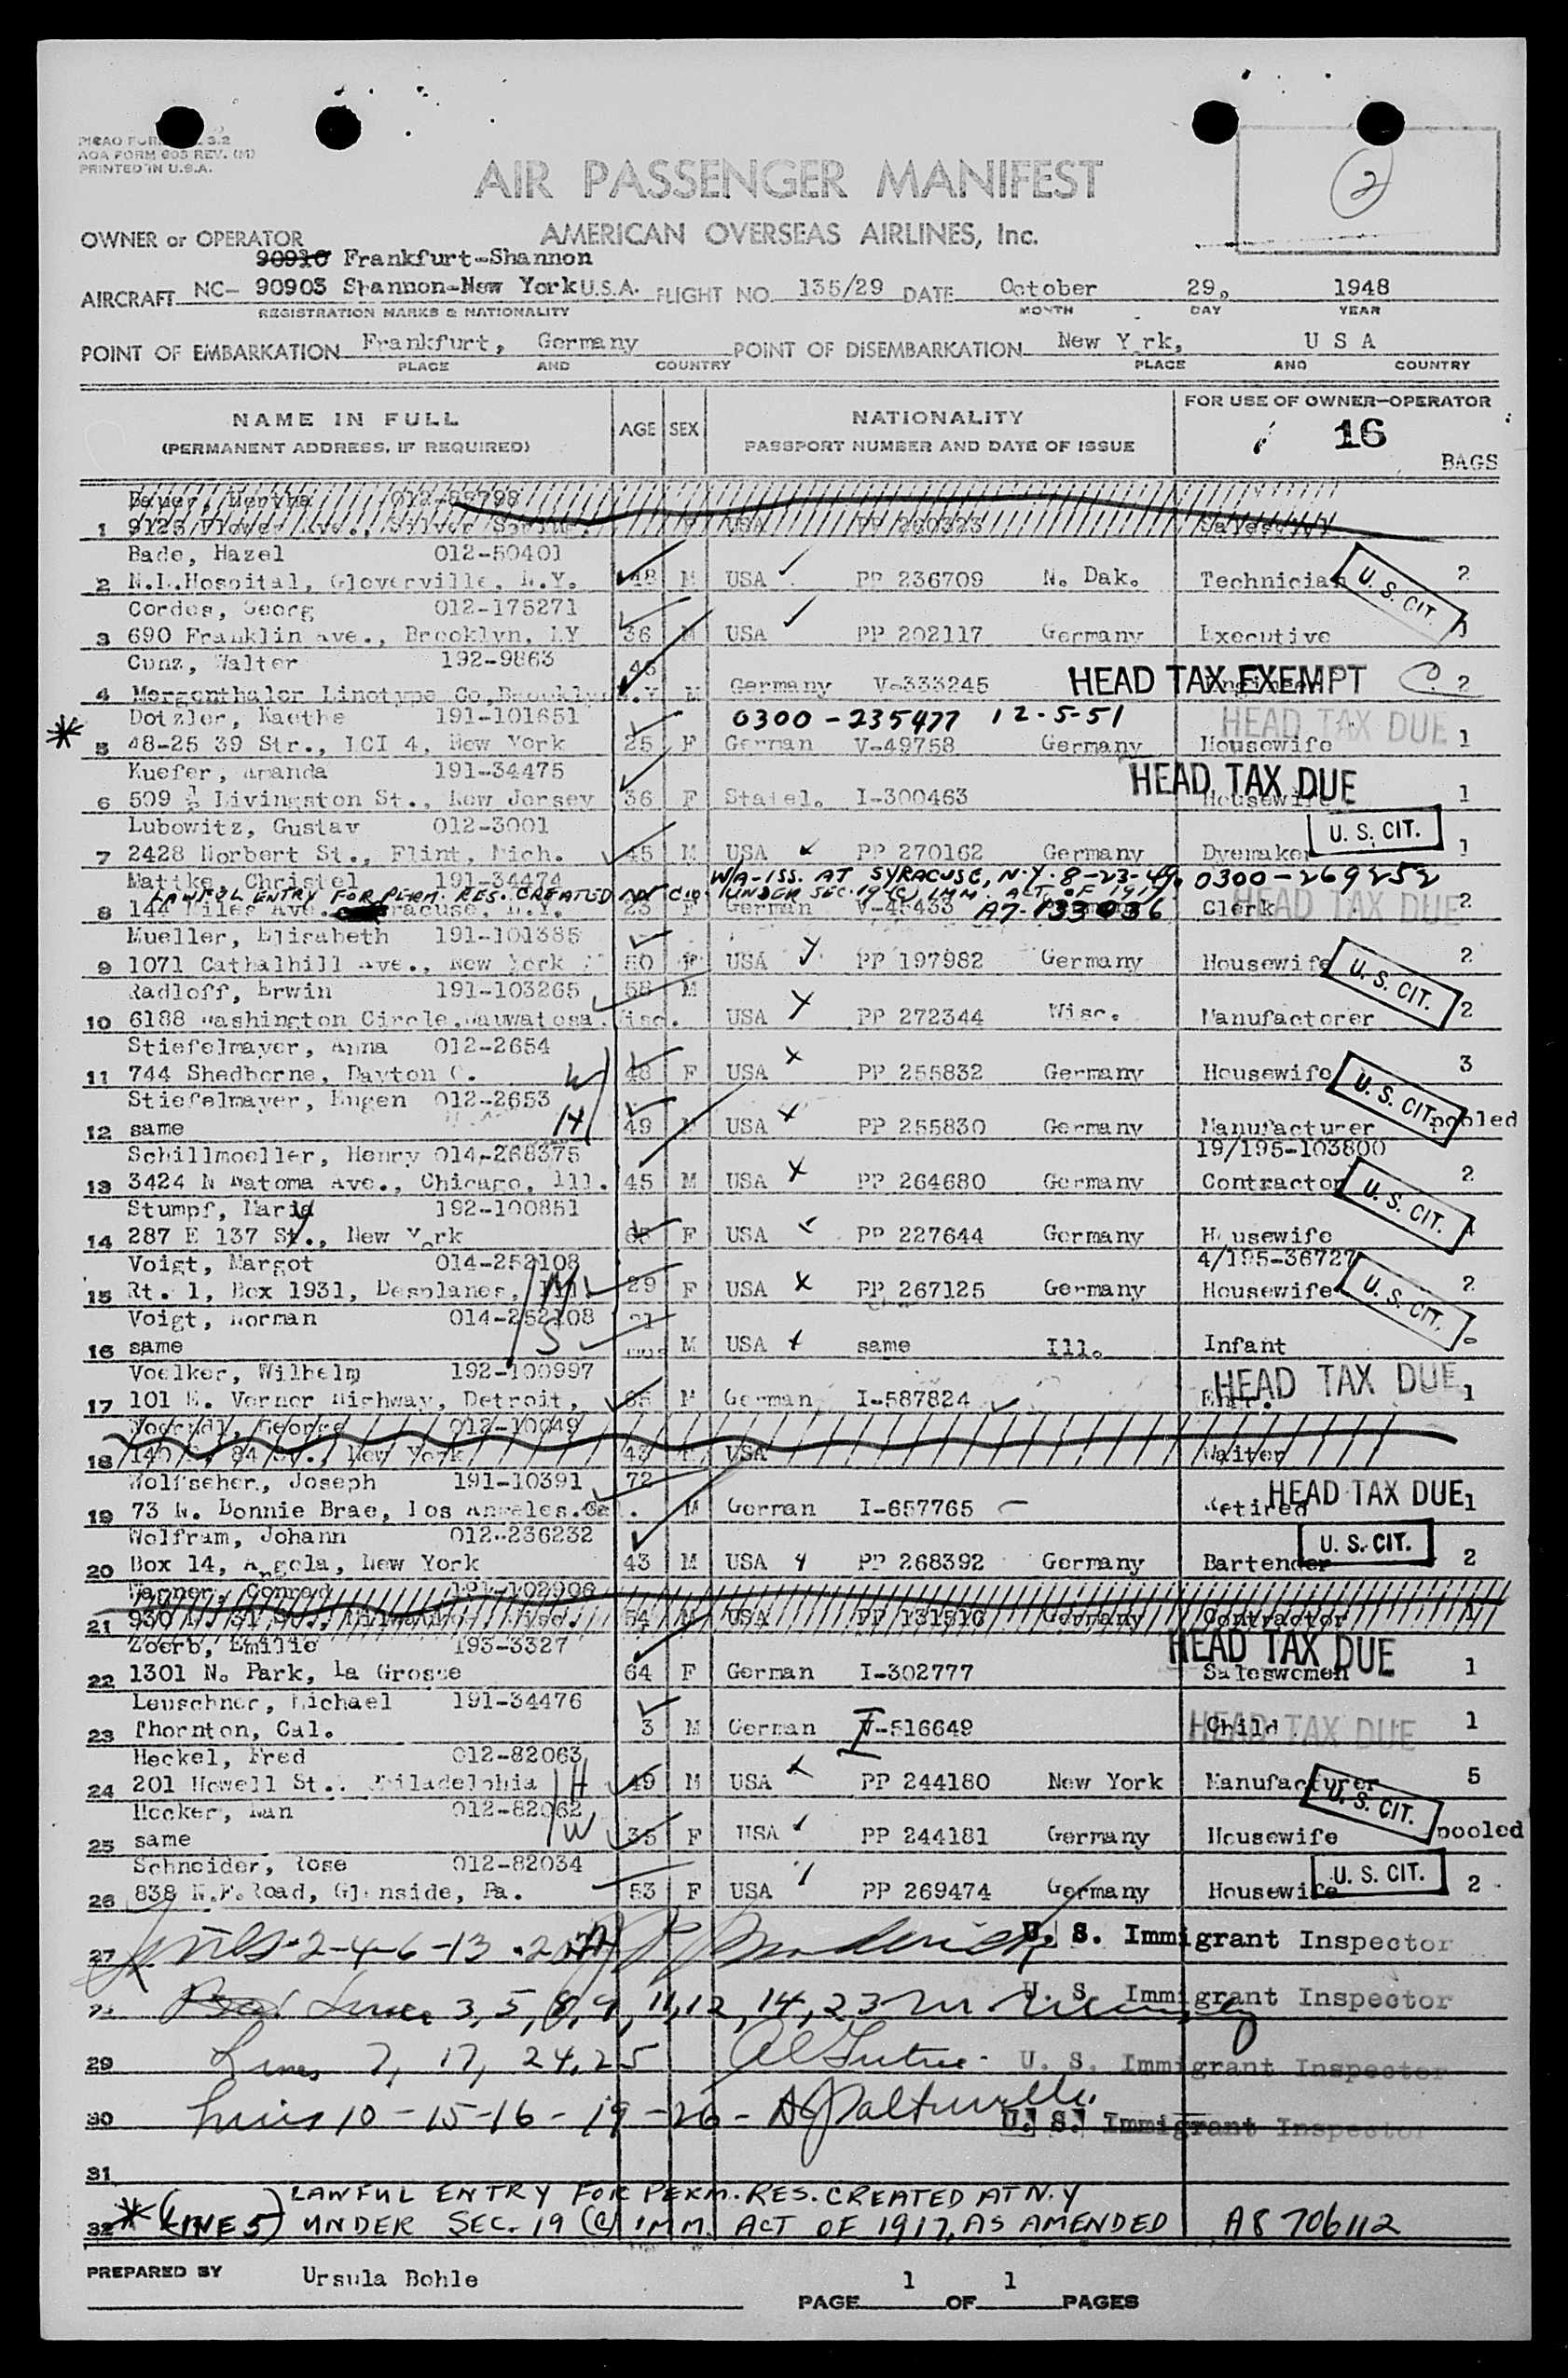 AOA FORM 603 REV. (M)
PRINTED IN U.S.A.
2
AIR PASSENGER MANIFEST
OWNER or OPERATOR AMERICAN OVERSEAS AIRLINES, Inc.
90910 Frankfurt-Shannon
AIRCRAFT NC- 90903 Shannon-New York U.S.A. FLIGHT NO. 135/29 DATE October 29, 1948
REGISTRATION MARKS & NATIONALITY MONTH DAY YEAR
POINT OF EMBARKATION Frankfurt, Germany POINT OF DISEMBARKATION New Y rk, U S A
PLACE AND COUNTRY PLACE AND COUNTRY
NAME IN FULL AGE SEX NATIONALITY FOR USE OF OWNER-OPERATOR
(PERMANENT ADDRESS, IF REQUIRED) PASSPORT NUMBER AND DATE OF ISSUE 16
BAGS
Bauer, Hertha
1 9125 Flower Ave., Silver F USA PP 260323
Bade, Hazel 012-50401
2 N.L.Hospital, Gloverville, N.Y. 48 M USA PP 236709 N. Dak. Technician U. S. CIT. 2
Cordes, Georg 012-175271
3 690 Franklin Ave., Brooklyn, NY 36 M USA PP 202117 Germany Executive
Cunz, Walter 192-9863 45
4 Mergenthaler Linotype Co,Brooklyn N.Y M Germany V-333245 HEAD TAX EXEMPT 2
Dotzler, Kaethe 191-101651 0300-235477 12-5-51 HEAD TAX DUE
* 5 48-25 39 Str., LCI 4, New York 25 F German V-49758 Germany Housewife 1
Kuefer, Amanda 191-34475 HEAD TAX DUE
6 509 ½ Livingston St., New Jersey 36 F Statel. I-300463 Housewife 1
Lubowitz, Gustav 012-3001 U. S. CIT.
7 2428 Norbert St., Flint, Mich. 45 M USA PP 270162 Germany Dyemaker 1
Mattke, Christel 191-34474 W/A-ISS. AT SYRACUSE, N.Y. 8-23-49. 0300-269252
LAWFUL ENTRY FOR PERM. RES. CREATED UNDER SEC. 19 (C) IMM. ACT OF 1917
8 144 Miles Ave. Syracuse, N.Y. 23 F German V-45433 A7-133036 Clerk HEAD TAX DUE 2
Mueller, Elisabeth 191-101385
9 1071 Cathalhill Ave., New York 50 F USA PP 197982 Germany Housewife U. S. CIT. 2
Radloff, Erwin 191-103265 58 M
10 6188 Washington Circle,Wauwatosa.Wisc. USA PP 272344 Wisc. Manufactorer 2
Stiefelmayer, Anna 012-2654
11 744 Shedborne, Dayton O. W 48 F USA PP 255832 Germany Housewife U. S. CIT. 3
Stiefelmayer, Eugen 012-2653
12 same H 49 M USA PP 255830 Germany Manufacturer pooled
Schillmoeller, Henry 014-268375 19/195-103800
13 3424 N Natoma Ave., Chicago, Ill. 45 M USA PP 264680 Germany Contractor U. S. CIT. 2
Stumpf, Maria 192-100851
14 287 E 137 St., New York F USA PP 227644 Germany H usewife
Voigt, Margot 014-252108 4/195-36727
15 Rt. 1, Box 1931, Desplanes, Ill. M 29 F USA PP 267125 Germany Housewife U. S. CIT. 2
Voigt, Norman 014-252108 21
16 same S mos M USA same Ill. Infant
Voelker, Wilhelm 192-100997 HEAD TAX DUE
17 101 W. Vernor Highway, Detroit, 65 M German I-587824 1
George 012-10049
18 140 E. 84 St., New York 43 M USA Waiter
Wolfseher, Joseph 191-10391 72
19 73 W. Bonnie Brae, Los Angeles.Cal. M German I-657765 Retired HEAD TAX DUE 1
Wolfram, Johann 012-236232 U. S. CIT.
20 Box 14, Angola, New York 43 M USA PP 268392 Germany Bartender 2
Wagner, Conrad 191-102906
21 930 N. 31 St., Milwaukee, Wisc. 54 M USA PP 131516 Germany Contractor 1
Zoerb, Emilie 193-3327 HEAD TAX DUE
22 1301 N. Park, La Grosse 64 F German I-302777 Saleswomen 1
Leuschner, Michael 191-34476
23 Thornton, Cal. 3 M German I-516649 Child HEAD TAX DUE 1
Heckel, Fred 012-82063
24 201 Howell St., Philadelphia H 49 M USA PP 244180 New York Manufacturer 5
Hecker, Nan 012-82062 U. S. CIT.
25 same W 35 F USA PP 244181 Germany Housewife pooled
Schneider, Rose 012-82034
26 838 N.F.Road, Glenside, Pa. 53 F USA PP 269474 Germany Housewife U. S. CIT. 2
27 Lines-2-4-6-13 U. S. Immigrant Inspector
28 Lines 3, 5, 8, 9, 11, 12, 14, 23 U. S. Immigrant Inspector
29 Lines 7, 17, 24, 25 U. S. Immigrant Inspector
30 Lines 10-15-16-19-26- U. S. Immigrant Inspector
31
LAWFUL ENTRY FOR PERM. RES. CREATED AT N.Y
32 * (LINE 5) UNDER SEC. 19 (C) IMM. ACT OF 1917, AS AMENDED A8 706112
PREPARED BY Ursula Bohle
PAGE 1 OF 1 PAGES